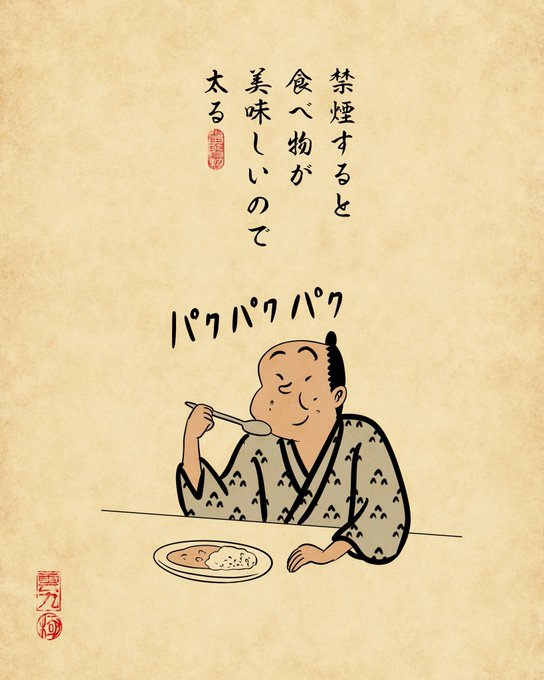 禁煙すると
食べ物が
美味しいので
太る
パクパクパク